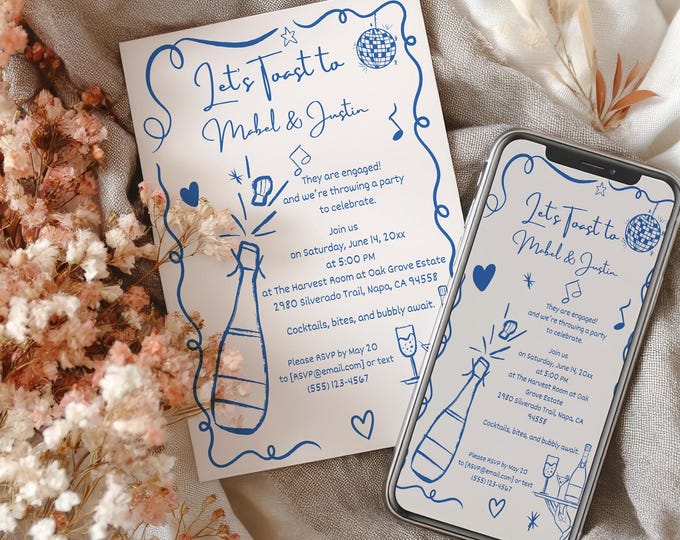 Let's Toast to
Mabel & Justin
They are engaged!
and we're throwing a party
to celebrate.
Join us
on Saturday, June 14, 20xx
at 5:00 PM
at The Harvest Room at Oak Grove Estate
2980 Silverado Trail, Napa, CA 94558
Cocktails, bites, and bubbly await.
Please RSVP by May 20
to [RSVP@email.com] or text
(555) 123-4567
Let's Toast to
Mabel & Justin
They are engaged!
and we're throwing a party
to celebrate.
Join us
on Saturday, June 14, 20xx
at 5:00 PM
at The Harvest Room at Oak Grove
Estate
2980 Silverado Trail, Napa, CA
94558
Cocktails, bites, and bubbly await.
Please RSVP by May 20
to [RSVP@email.com] or text
(555) 123-4567